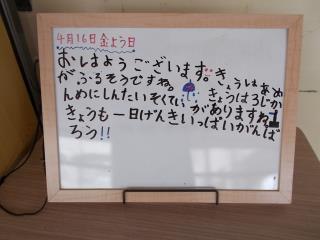 4月16日金よう日
おはようございます。きょうはあめ
がふるそうですね。きょうは3じか
んめにしんたいそくていがありますね。
きょうも一日げんきいっぱいがんば
ろう!!